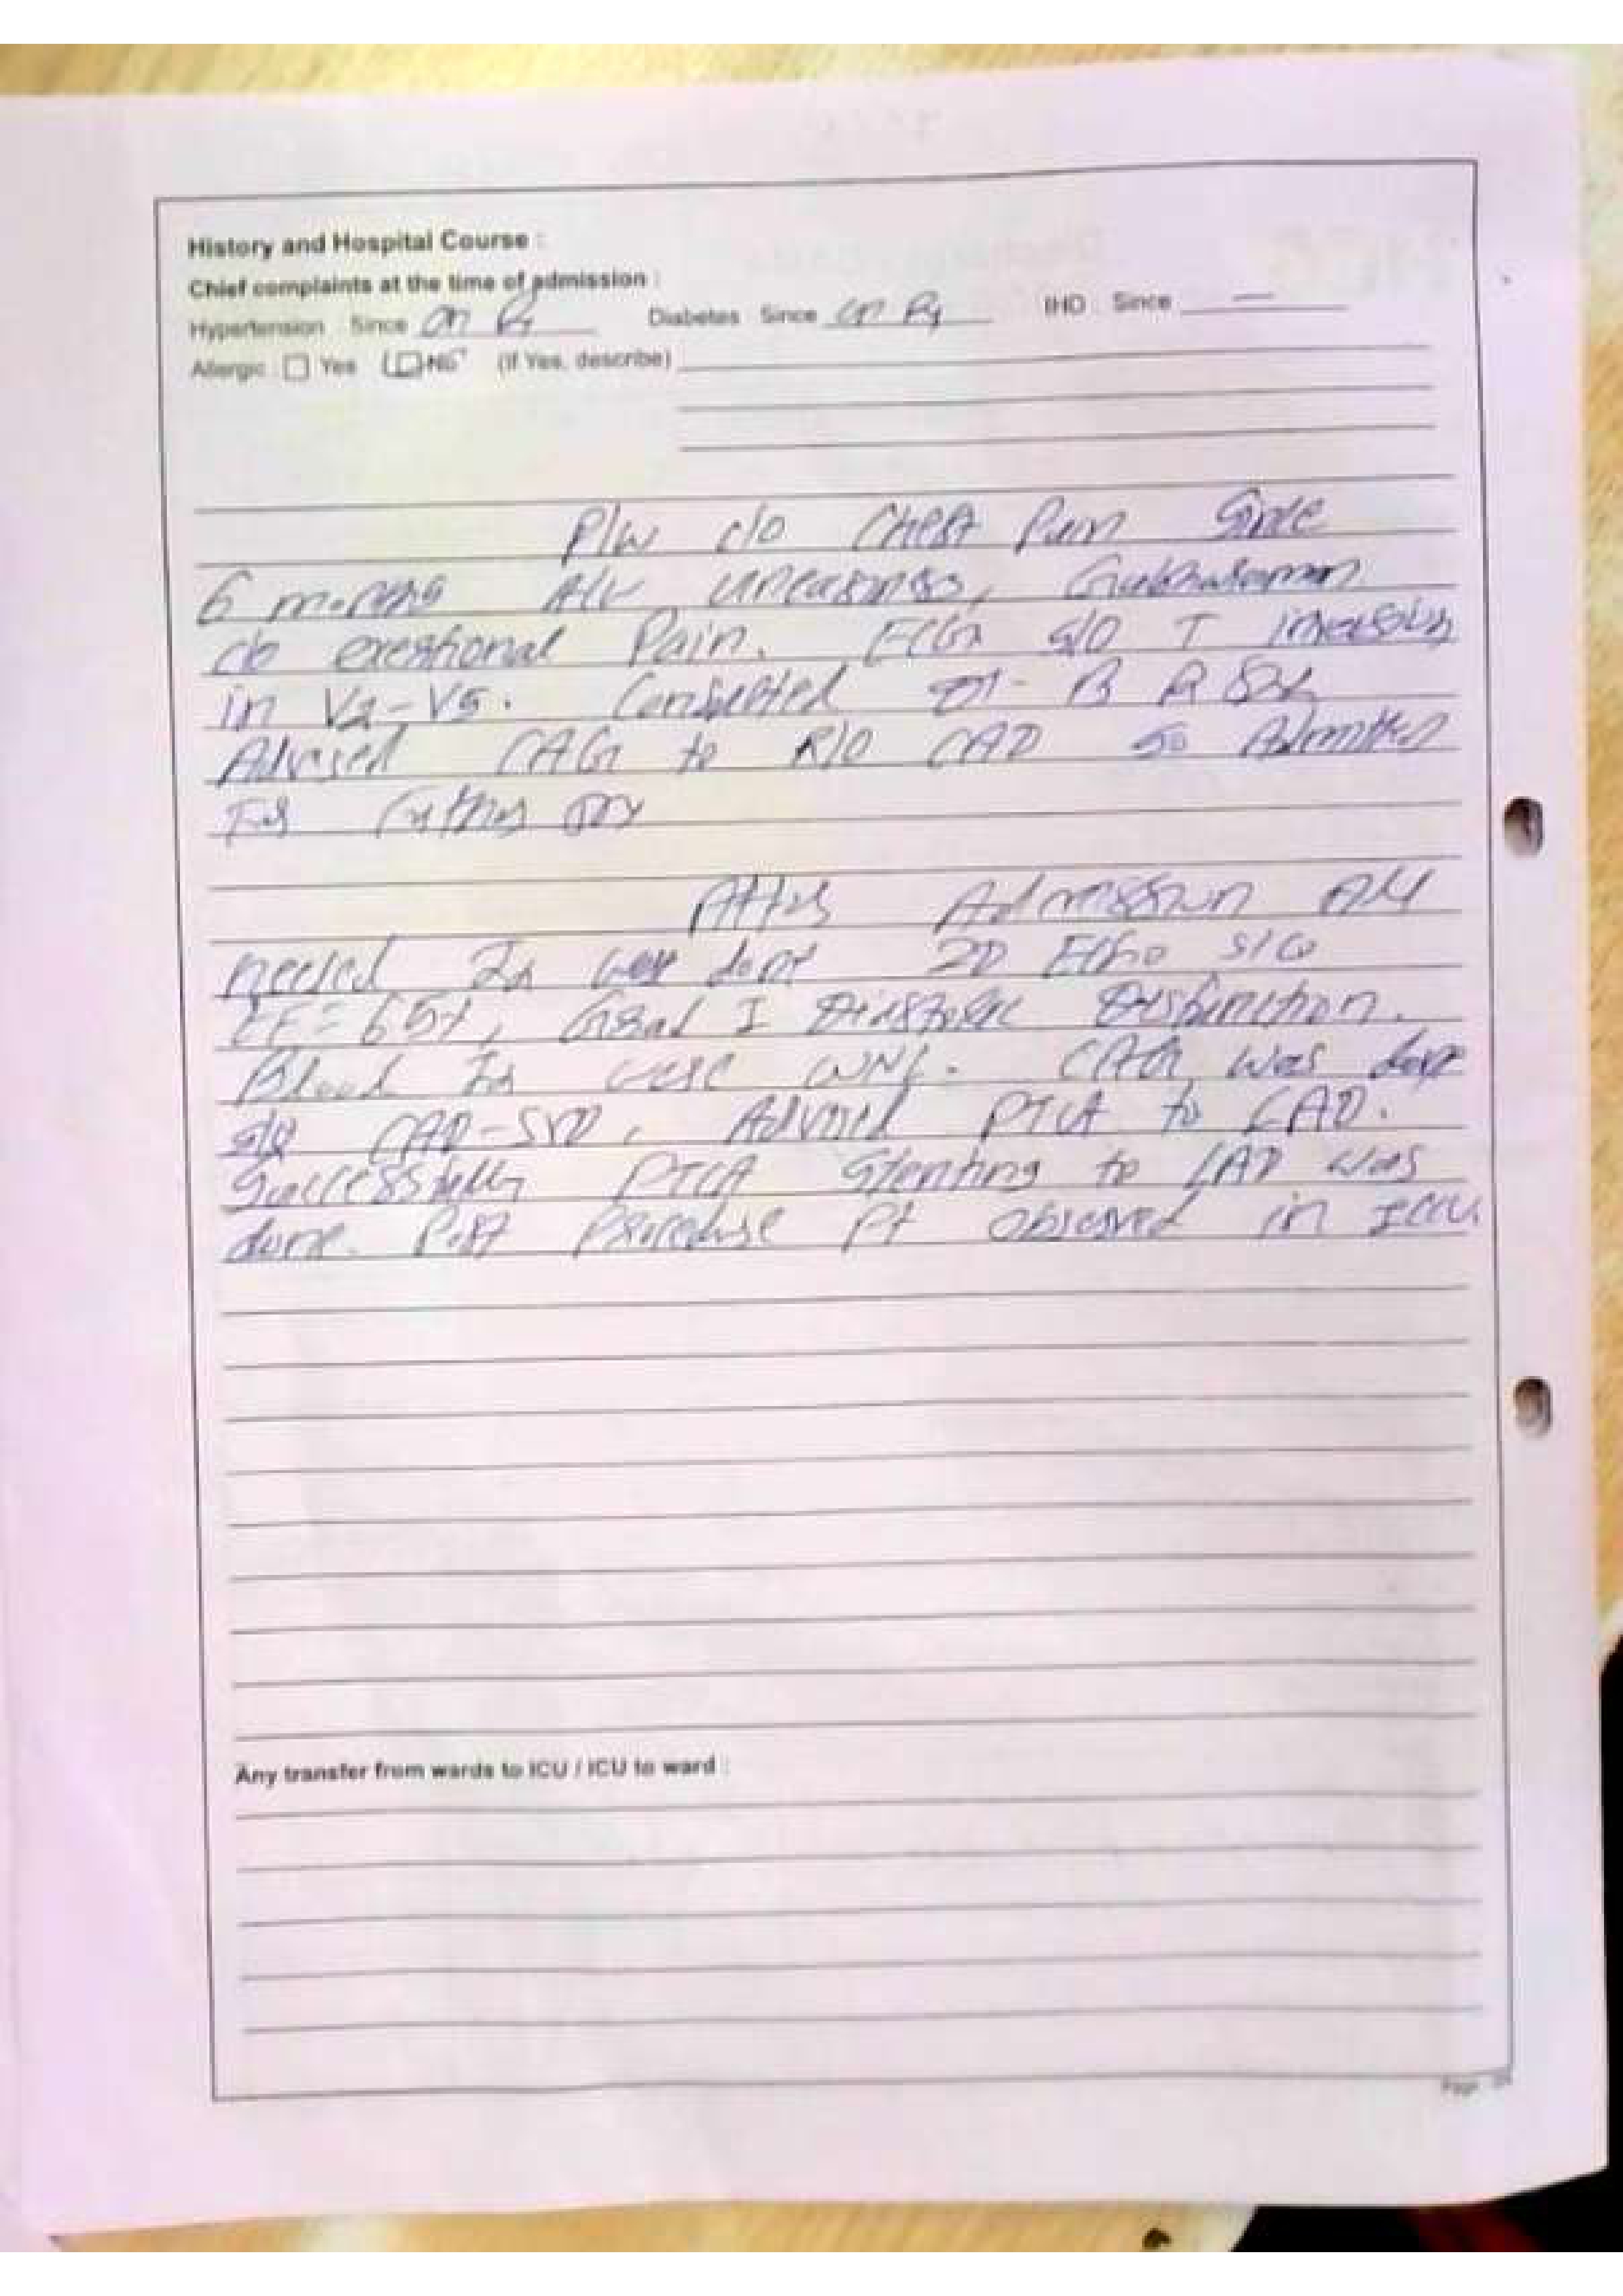 History and Hospital Course :
Chief complaints at the time of admission :
Hypertension Since on Rx Diabetes Since on Rx IHD Since —
Allergic Yes No (If Yes, describe)
P/w c/o Chest Pain Since
6 months A/w uneasiness, Gabhraman
c/o exertional Pain. ECG s/o T inversion
in V2-V5. Consulted
Advised CAG to R/O CAD so Admitted
For further
After Admission All
needed Ix were done 2D Echo s/o
EF = 65%, Grad I Diastolic Disfunction.
Blood Ix were WNL. CAG was done
s/o CAD-SVD, Advised PTCA to LAD.
Successfully PTCA Stenting to LAD was
done. Post Procedure Pt Observed in ICCU.
Any transfer from wards to ICU / ICU to ward :
Page